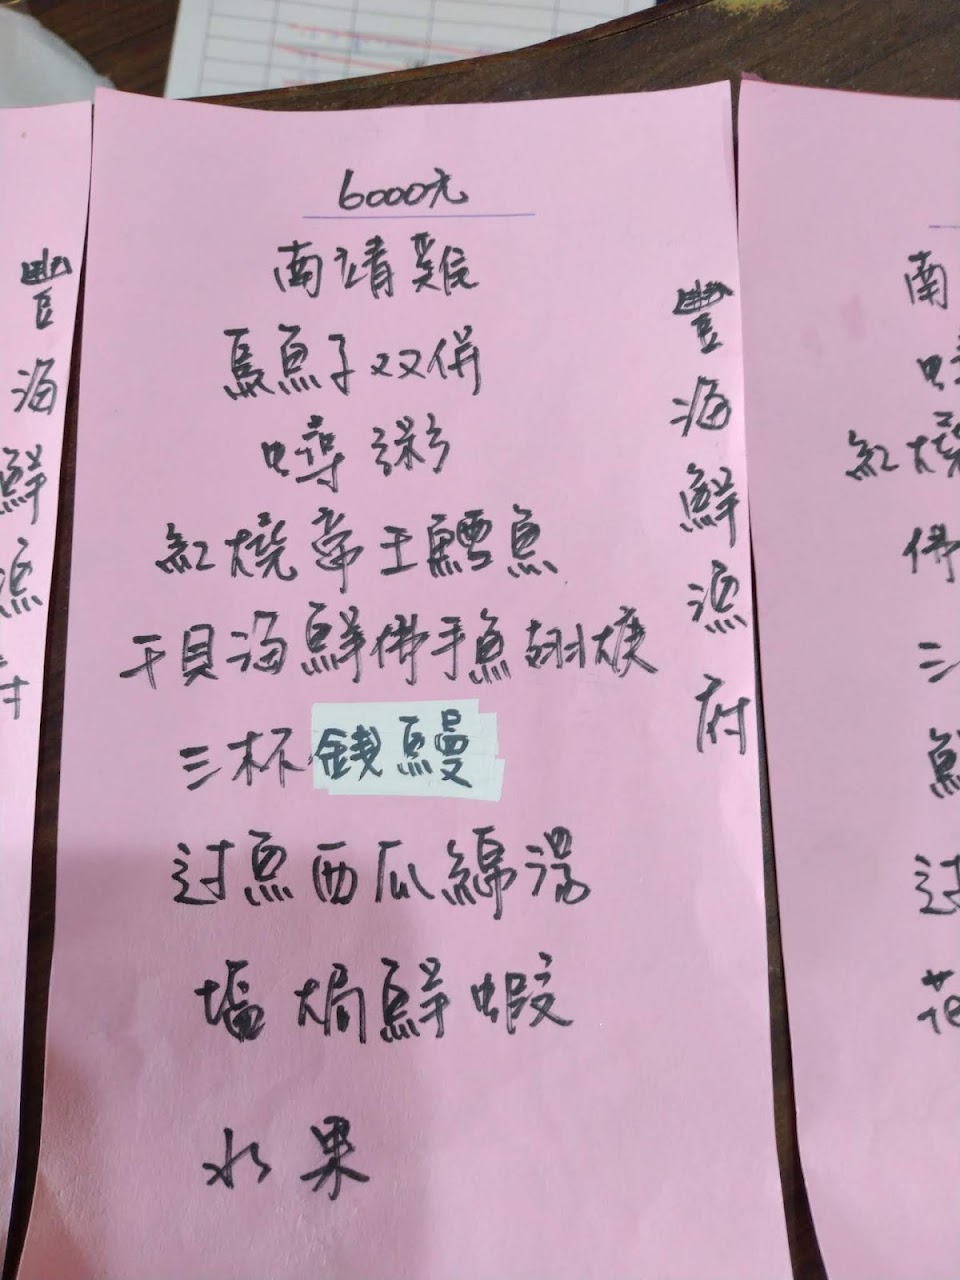 6000元
南靖雞
烏魚子双併
蟳粥
紅燒帝王鱈魚
干貝海鮮佛手魚翅焿
三杯錢鰻
过魚西瓜綿湯
塩焗鮮蝦
水果
豐海鮮漁府
豐海鮮漁府
南
蟳
紅燒
佛
三
鮮
过
花